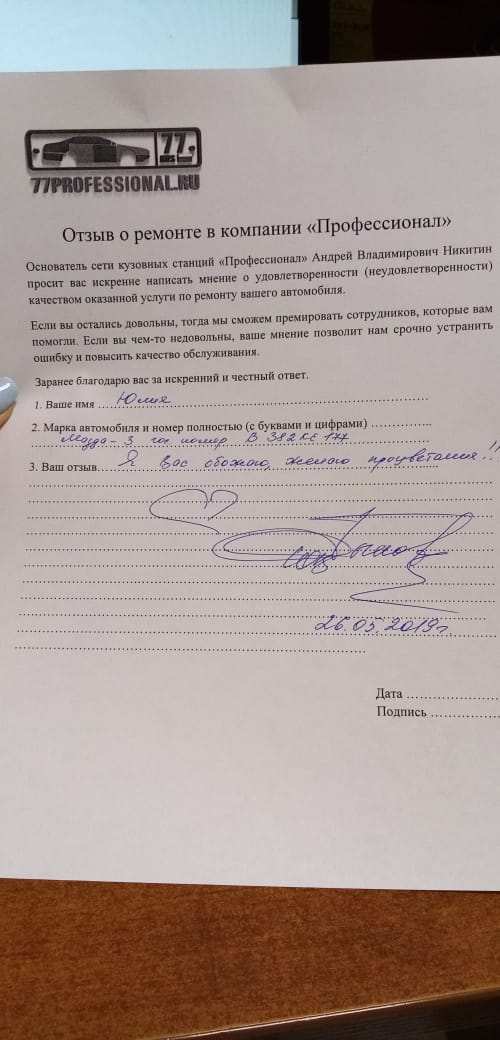 77
77PROFESSIONAL.RU
Отзыв о ремонте в компании «Профессионал»
Основатель сети кузовных станций «Профессионал» Андрей Владимирович Никитин
просит вас искренне написать мнение о удовлетворенности (неудовлетворенности)
качеством оказанной услуги по ремонту вашего автомобиля.
Если вы остались довольны, тогда мы сможем премировать сотрудников, которые вам
помогли. Если вы чем-то недовольны, ваше мнение позволит нам срочно устранить
ошибку и повысить качество обслуживания.
Заранее благодарю вас за искренний и честный ответ.
1. Ваше имя Юлия
2. Марка автомобиля и номер полностью (с буквами и цифрами)
Мазда-3 гос номер В 382 КЕ 177
3. Ваш отзыв Я вас обожаю, желаю процветания!!!
26.05.2019г.
Дата
Подпись